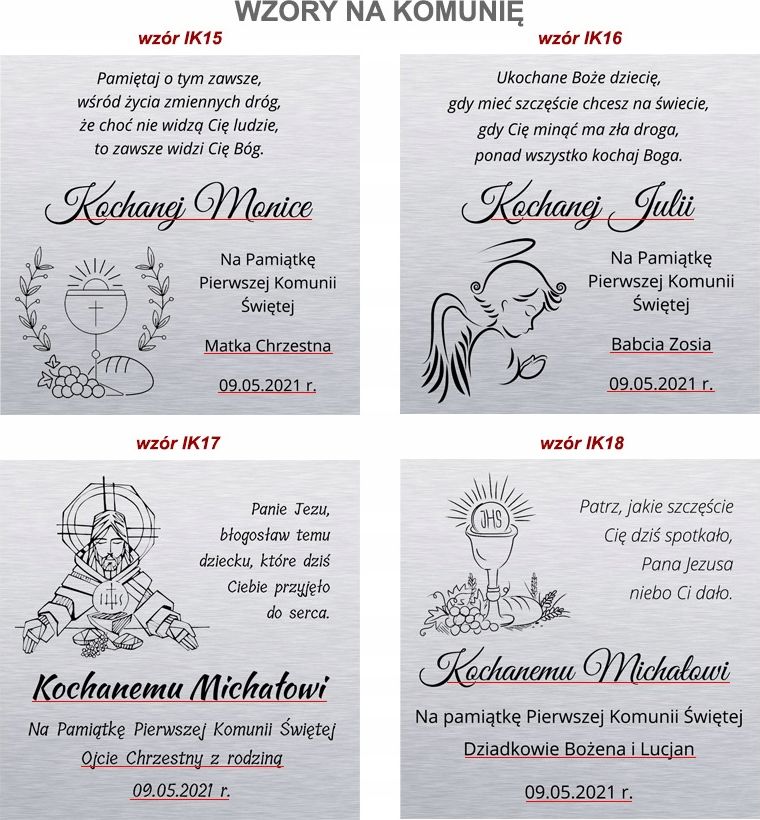 WZORY NA KOMUNIĘ
wzór IK15
Pamiętaj o tym zawsze,
wśród życia zmiennych dróg,
że choć nie widzą Cię ludzie,
to zawsze widzi Cię Bóg.
Kochanej Monice
Na Pamiątkę
Pierwszej Komunii
Świętej
Matka Chrzestna
09.05.2021 r.
wzór IK16
Ukochane Boże dziecię,
gdy mieć szczęście chcesz na świecie,
gdy Cię minąć ma zła droga,
ponad wszystko kochaj Boga.
Kochanej Julii
Na Pamiątkę
Pierwszej Komunii
Świętej
Babcia Zosia
09.05.2021 r.
wzór IK17
Panie Jezu,
błogosław temu
dziecku, które dziś
Ciebie przyjęło
do serca.
IHS
Kochanemu Michałowi
Na Pamiątkę Pierwszej Komunii Świętej
Ojcie Chrzestny z rodziną
09.05.2021 r.
wzór IK18
JHS
Patrz, jakie szczęście
Cię dziś spotkało,
Pana Jezusa
niebo Ci dało.
Kochanemu Michałowi
Na pamiątkę Pierwszej Komunii Świętej
Dziadkowie Bożena i Lucjan
09.05.2021 r.